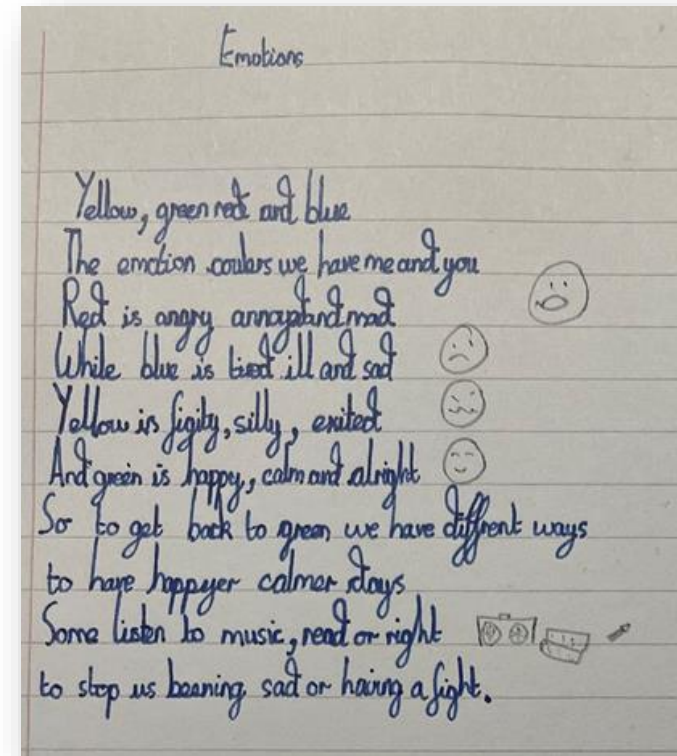 Emotions
Yellow, green red and blue
The emotion coulers we have me and you
Red is angry annoyed and mad
While blue is tired ill and sad
Yellow is figity, silly, exited
And green is happy, calm and alright
So to get back to green we have diffrent ways
to have happyer calmer days
Some listen to music, read or right
to stop us beening sad or having a fight.